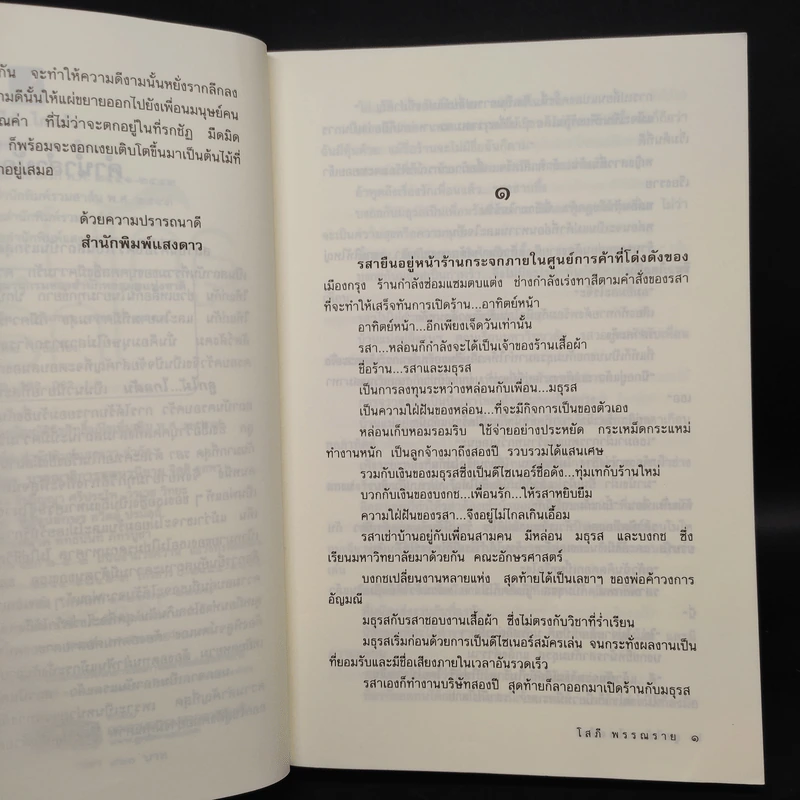 กัน จะทำให้ความดีงามนั้นหยั่งรากลึกลง
ามดีนั้นให้แผ่ขยายออกไปยังเพื่อนมนุษย์คน
ณค่า ที่ไม่ว่าจะตกอยู่ในที่รกชัฏ มืดมิด
ก็พร้อมจะงอกเงยเติบโตขึ้นมาเป็นต้นไม้ที่
าอยู่เสมอ
ด้วยความปรารถนาดี
สำนักพิมพ์แสงดาว
๑
รสายืนอยู่หน้าร้านกระจกภายในศูนย์การค้าที่โด่งดังของ
เมืองกรุง ร้านกำลังซ่อมแซมตบแต่ง ช่างกำลังเร่งทาสีตามคำสั่งของรสา
ที่จะทำให้เสร็จทันการเปิดร้าน...อาทิตย์หน้า
อาทิตย์หน้า...อีกเพียงเจ็ดวันเท่านั้น
รสา...หล่อนก็กำลังจะได้เป็นเจ้าของร้านเสื้อผ้า
ชื่อร้าน...รสาและมธุรส
เป็นการลงทุนระหว่างหล่อนกับเพื่อน...มธุรส
เป็นความใฝ่ฝันของหล่อน...ที่จะมีกิจการเป็นของตัวเอง
หล่อนเก็บหอมรอมริบ ใช้จ่ายอย่างประหยัด กระเหม็ดกระแหม่
ทำงานหนัก เป็นลูกจ้างมาถึงสองปี รวบรวมได้แสนเศษ
รวมกับเงินของมธุรสซึ่งเป็นดีไซเนอร์ชื่อดัง...ทุ่มเทกับร้านใหม่
บวกกับเงินของบงกช...เพื่อนรัก...ให้รสาหยิบยืม
ความใฝ่ฝันของรสา...จึงอยู่ไม่ไกลเกินเอื้อม
รสาเช่าบ้านอยู่กับเพื่อนสามคน มีหล่อน มธุรส และบงกช ซึ่ง
เรียนมหาวิทยาลัยมาด้วยกัน คณะอักษรศาสตร์
บงกชเปลี่ยนงานหลายแห่ง สุดท้ายได้เป็นเลขาฯ ของพ่อค้าวงการ
อัญมณี
มธุรสกับรสาชอบงานเสื้อผ้า ซึ่งไม่ตรงกับวิชาที่ร่ำเรียน
มธุรสเริ่มก่อนด้วยการเป็นดีไซเนอร์สมัครเล่น จนกระทั่งผลงานเป็น
ที่ยอมรับและมีชื่อเสียงภายในเวลาอันรวดเร็ว
รสาเองก็ทำงานบริษัทสองปี สุดท้ายก็ลาออกมาเปิดร้านกับมธุรส
โสภี พรรณราย ๑